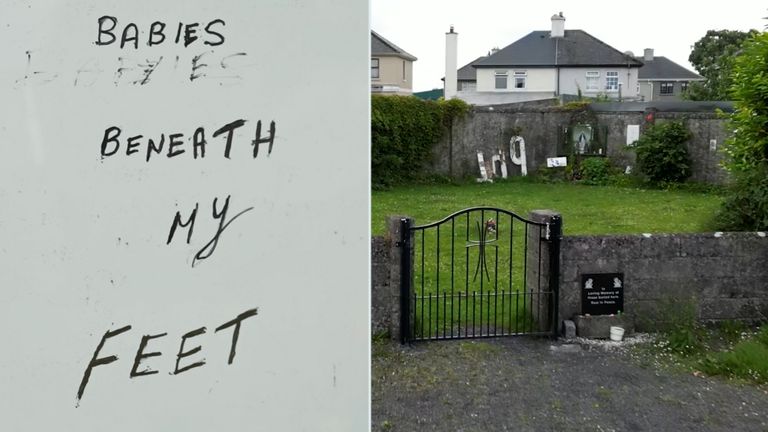 BABIES
BENEATH
MY
FEET
In
Loving Memory of
those buried here
Rest in Peace